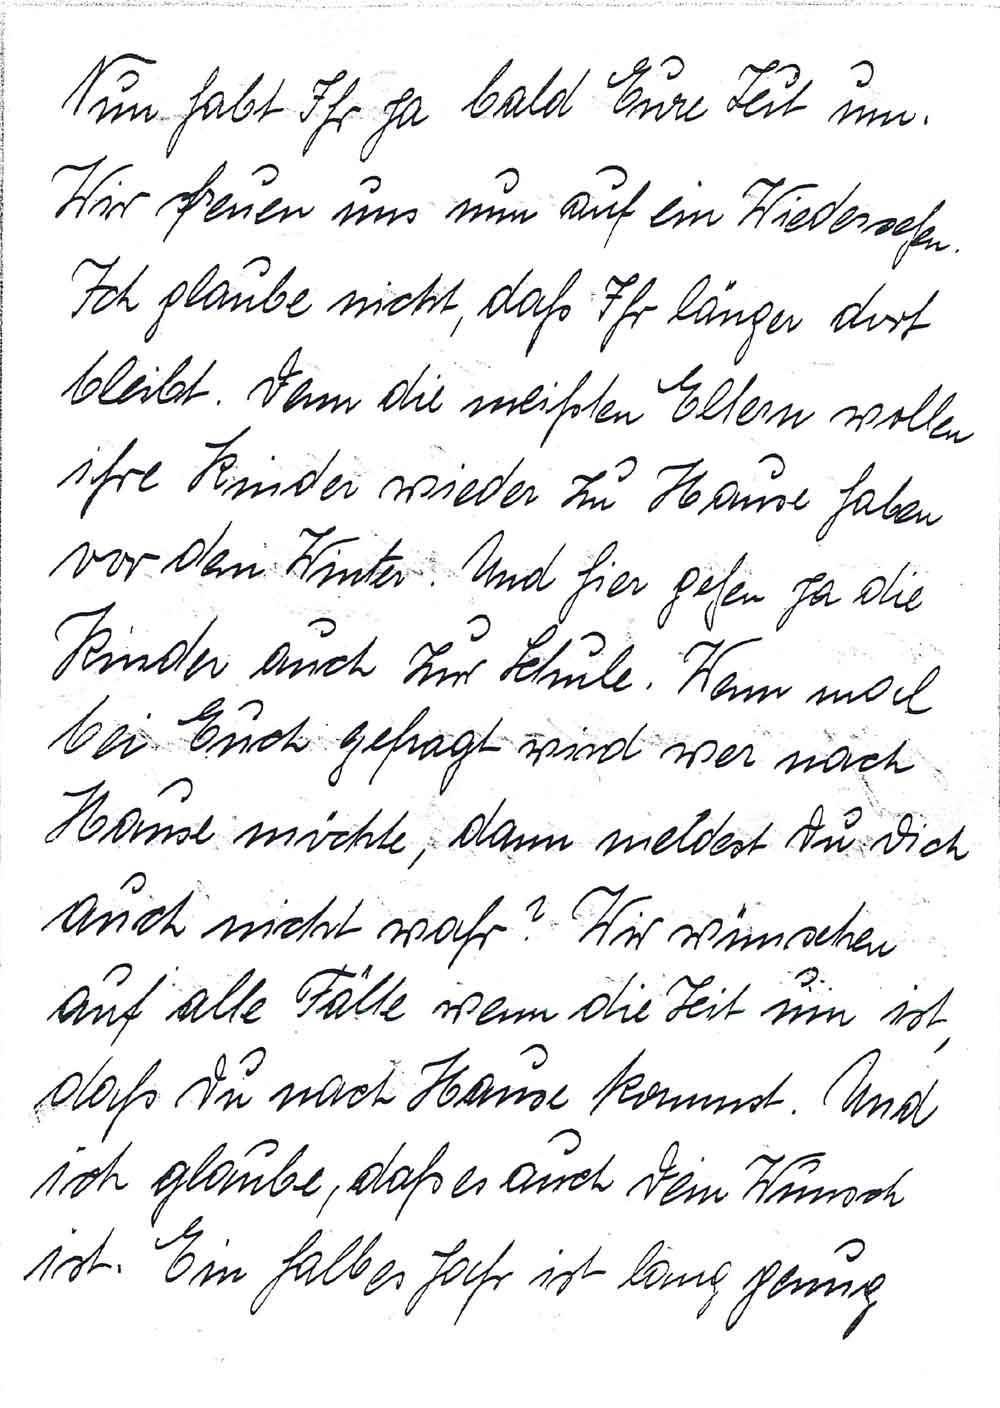 Nun habt Ihr ja bald Eure Zeit um.
Wir freuen uns nun auf ein Wiedersehen.
Ich glaube nicht, daß Ihr länger dort
bleibt. Denn die meißten Eltern wollen
ihre Kinder wieder zu Hause haben
vor dem Winter. Und hier gehen ja die
Kinder auch zur Schule. Wenn mal
bei Euch gefragt wird wer nach
Hause möchte, dann meldest Du Dich
auch nicht wahr? Wir wünschen
auf alle Fälle wenn die Zeit um ist,
daß Du nach Hause kommst. Und
ich glaube, daß es auch Dein Wunsch
ist. Ein halbes Jahr ist lang genug